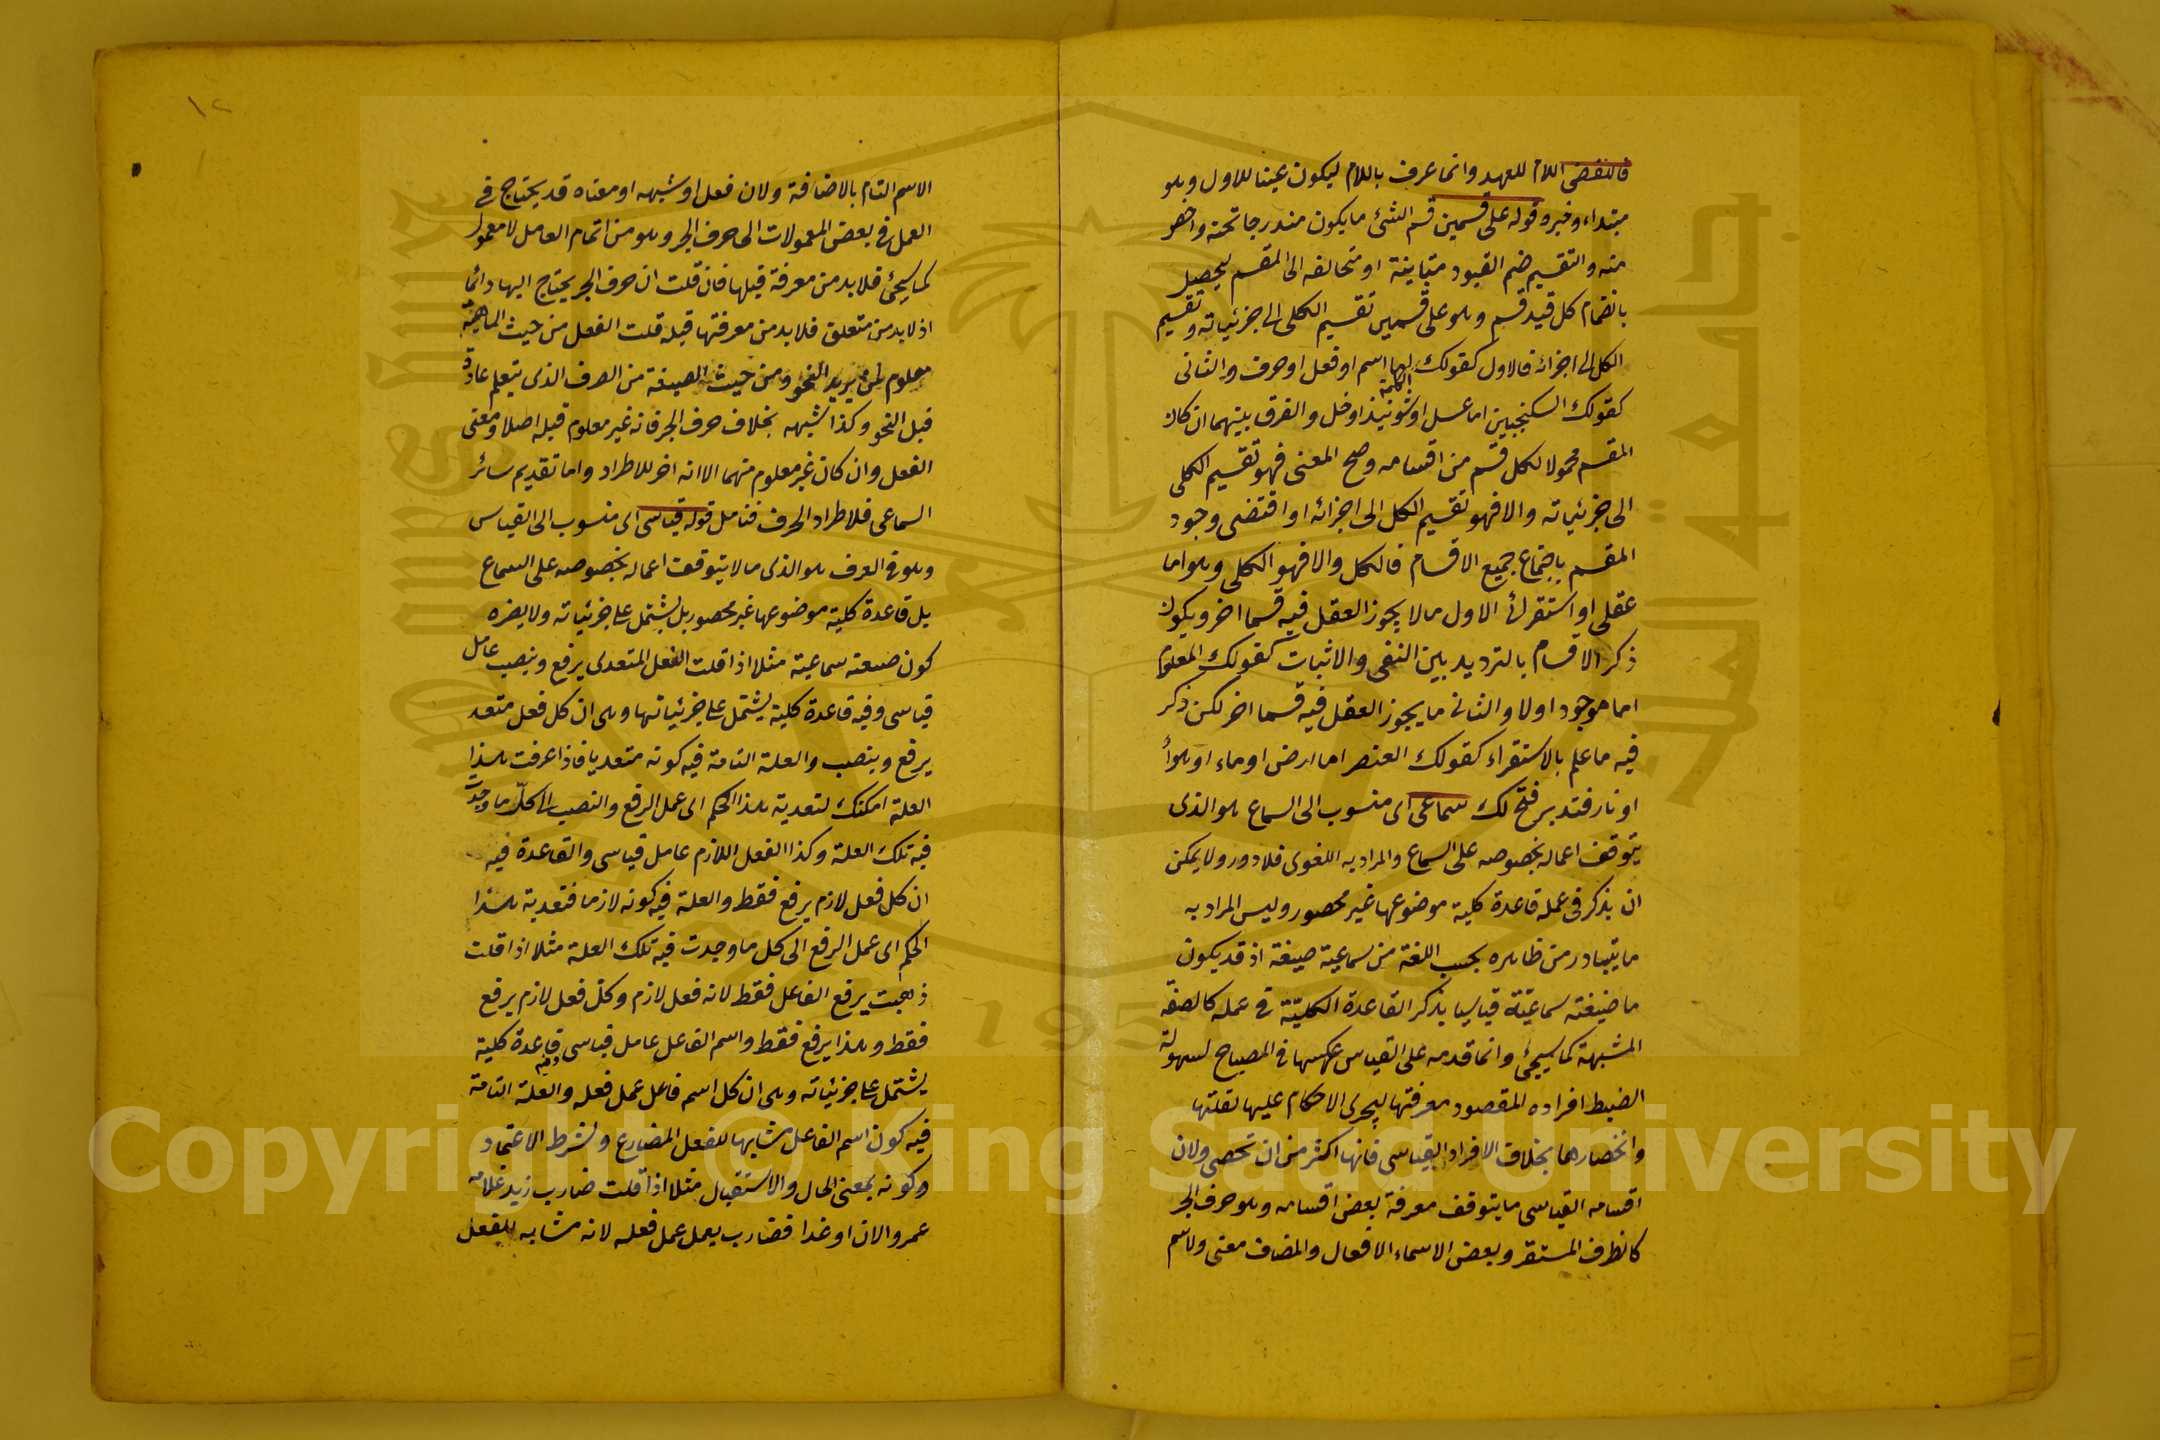 فاللفظي اللام للعهد وانما عرف باللام ليكون عينا للاول وهو
مبتداء وخبر وقوله على قسمين قسم الشئ ما يكون مندرجا تحته واخص
منه والتقسيم ضم القيود متباينة او متخالفه الى المقسم ليحصل
بانضمام كل قيد قسم وهو على قسمين تقسيم الكلى الى جزئياته وتقسيم
الكل الى اجزائه فالاول كقولك الكلمة اسم او فعل او حرف والثانى
كقولك السكنجبين اما عسل او خل والفرق بينهما ان كان
المقسم محمولا لكل قسم من اقسامه وصح المعنى فهو تقسيم الكلى
الى جزئياته والا فهو تقسيم الكل الى اجزائه او اقتضى وجود
المقسم باجتماع جميع الاقسام فالكل والا فهو الكلى وهو اما
عقلى او استقرائ الاول ما لا يجوز العقل فيه قسما اخر ويكون
ذكر الاقسام بالترديد بين النفى والاثبات كقولك المعلوم
اما موجود اولا والثانى ما يجوز العقل فيه قسما اخر لكن ذكر
فيه ما علم بالاستقراء كقولك العنصر اما ارض او ماء او هواء
او نار فتدبر فتح لك سماعى اى منسوب الى السماع هو الذى
يتوقف اعماله بخصوصه على السماع والمراد به اللغوى فلا دور ولا يمكن
ان يذكر فى عمله قاعدة كلية موضوعها غير محصور وليس المراد به
ما يتبادر من ظاهره بحسب اللغة من سماعية صيغة اذ قد يكون
ما صيغته سماعيّة قياسيا بذكر القاعدة الكليّة فى عمله كالصفة
المشبهة كما سيجئ وانما قدمه على القياس عكسها فى المصباح لسهولة
الضبط افراده المقصود معرفتها ليجرى الاحكام عليها لقلتها
وانحصارها بخلاف الافراد القياسى فانها اكثر من ان تحصى ولان
اقسامه القياسى ما يتوقف معرفة بعض اقسامه وهو حرف الجر
كالظرف المستقر وبعض الاسماء الافعال والمضاف معنى ولاسم
١٢
الاسم التام بالاضافة ولان فعل او شبهه او معناه قد يحتاج فى
العمل فى بعض المعمولات الى حرف الجر وهو من اتمام العامل لا معمول
كما سيجئ فلا بد من معرفة قبلها فان قلت ان حرف الجر يحتاج اليها دائما
اذ لا بد من متعلق فلا بد من معرفتها قبله قلت الفعل من حيث الماهية
معلوم لمن يريد النحو ومن حيث الصيغة من الصرف الذى يتعلم عادة
قبل النحو وكذا شبهه بخلاف حرف الجر فانه غير معلوم قبله اصلا ومعنى
الفعل وان كان غير معلوم منهما الا انه اخر للاطراد واما تقديم سائر
السماعى فلاطراد الحرف فتامل قوله قياسى اى منسوب الى القياس
وهو فى العرف هو الذى ما لا يتوقف اعماله بخصوصه على السماع
بل قاعدة كلية موضوعها غير محصور بل يشتمل على جزئياته ولا يضره
كون صيغته سماعية مثلا اذا قلت الفعل المتعدى يرفع وينصب عامل
قياسى وفيه قاعدة كلية يشتمل على جزئياتها وهى ان كل فعل متعد
يرفع وينصب والعلة التامة فيه كونه متعديا فاذا عرفت هذا
العلة امكنك لتعدية هذا الحكم اى عمل الرفع والنصب الى كلّ ما وجدت
فيه تلك العلة وكذا الفعل اللازم عامل قياسى والقاعدة فيه
ان كل فعل لازم يرفع فقط والعلة فيه كونه لازما فتعدية هذا
الحكم اى عمل الرفع الى كل ما وجدت فيه تلك العلة مثلا اذا قلت
ذهبت يرفع الفاعل فقط لانه فعل لازم وكل فعل لازم يرفع
فقط وهذا يرفع فقط واسم الفاعل عامل قياسى وفيه قاعدة كلية
يشتمل على جزئياته وهى ان كل اسم فاعل عمل فعله والعلة التامة
فيه كون اسم الفاعل مشابها للفعل المضارع وشرط الاعتماد
وكونه بمعنى الحال والاستقبال مثلا اذا قلت ضارب زيد غلامه
عمرو الان او غدا فضارب يعمل عمل فعله لانه مشابه للفعل
جامعة الملك سعود
King Saud University
1957
Copyright © King Saud University